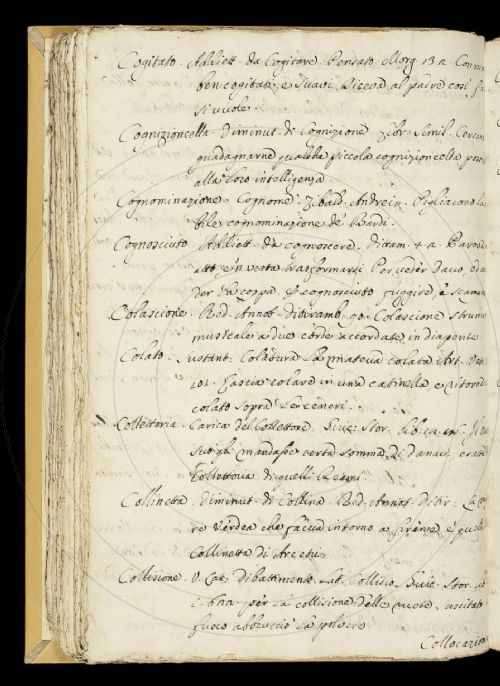 Cogitato. Addiett. da Cogitare. Pensato Morg. 13. 2. Con mo
ben cogitati, e suavi Diceva al padre così
si vuole.
Cognizioncella. Diminut. di Cognizione Zibr. Simil. Cercan
guadagnarne qualche piccola cognizioncella
alla loro intelligenza
Cognominazione. Cognome. Zibald. Andrein. Pigliarono la
bile cognominazione de' Bardi.
Cognosciuto. Addiett. da cognoscere. Ditam. 4. 2.
atto e in vesta trasformarsi Per veder Davo, ed
der la coppa, E cognosciuto fuggire e scam
Colascione. Red. Annot. Ditiramb. 90. Colascione strum
musicale a due corde accordate in diapente
Colato. Sustant. Colatura La materia colata Art. Vet.
101. Lascia colare in una catinella e ritorna
colato sopra le ceneri.
Collettoria. Carica del Collettore. Stor. lib.
mandasse certa somma di danari, e
Collettoria di quelli Regni
Collinetta. Diminut. di Collina. Red. Annot. Ditir. La
re Verdea che faccia intorno a Firenze è quella
Collinetta di Arcetri
Collisione. V. Lat. Dibattimento. Lat. Collisio. Stor. lib
per la collisione delle ruote, uscitato
fuoco abbruciò la polvere
Collocazion